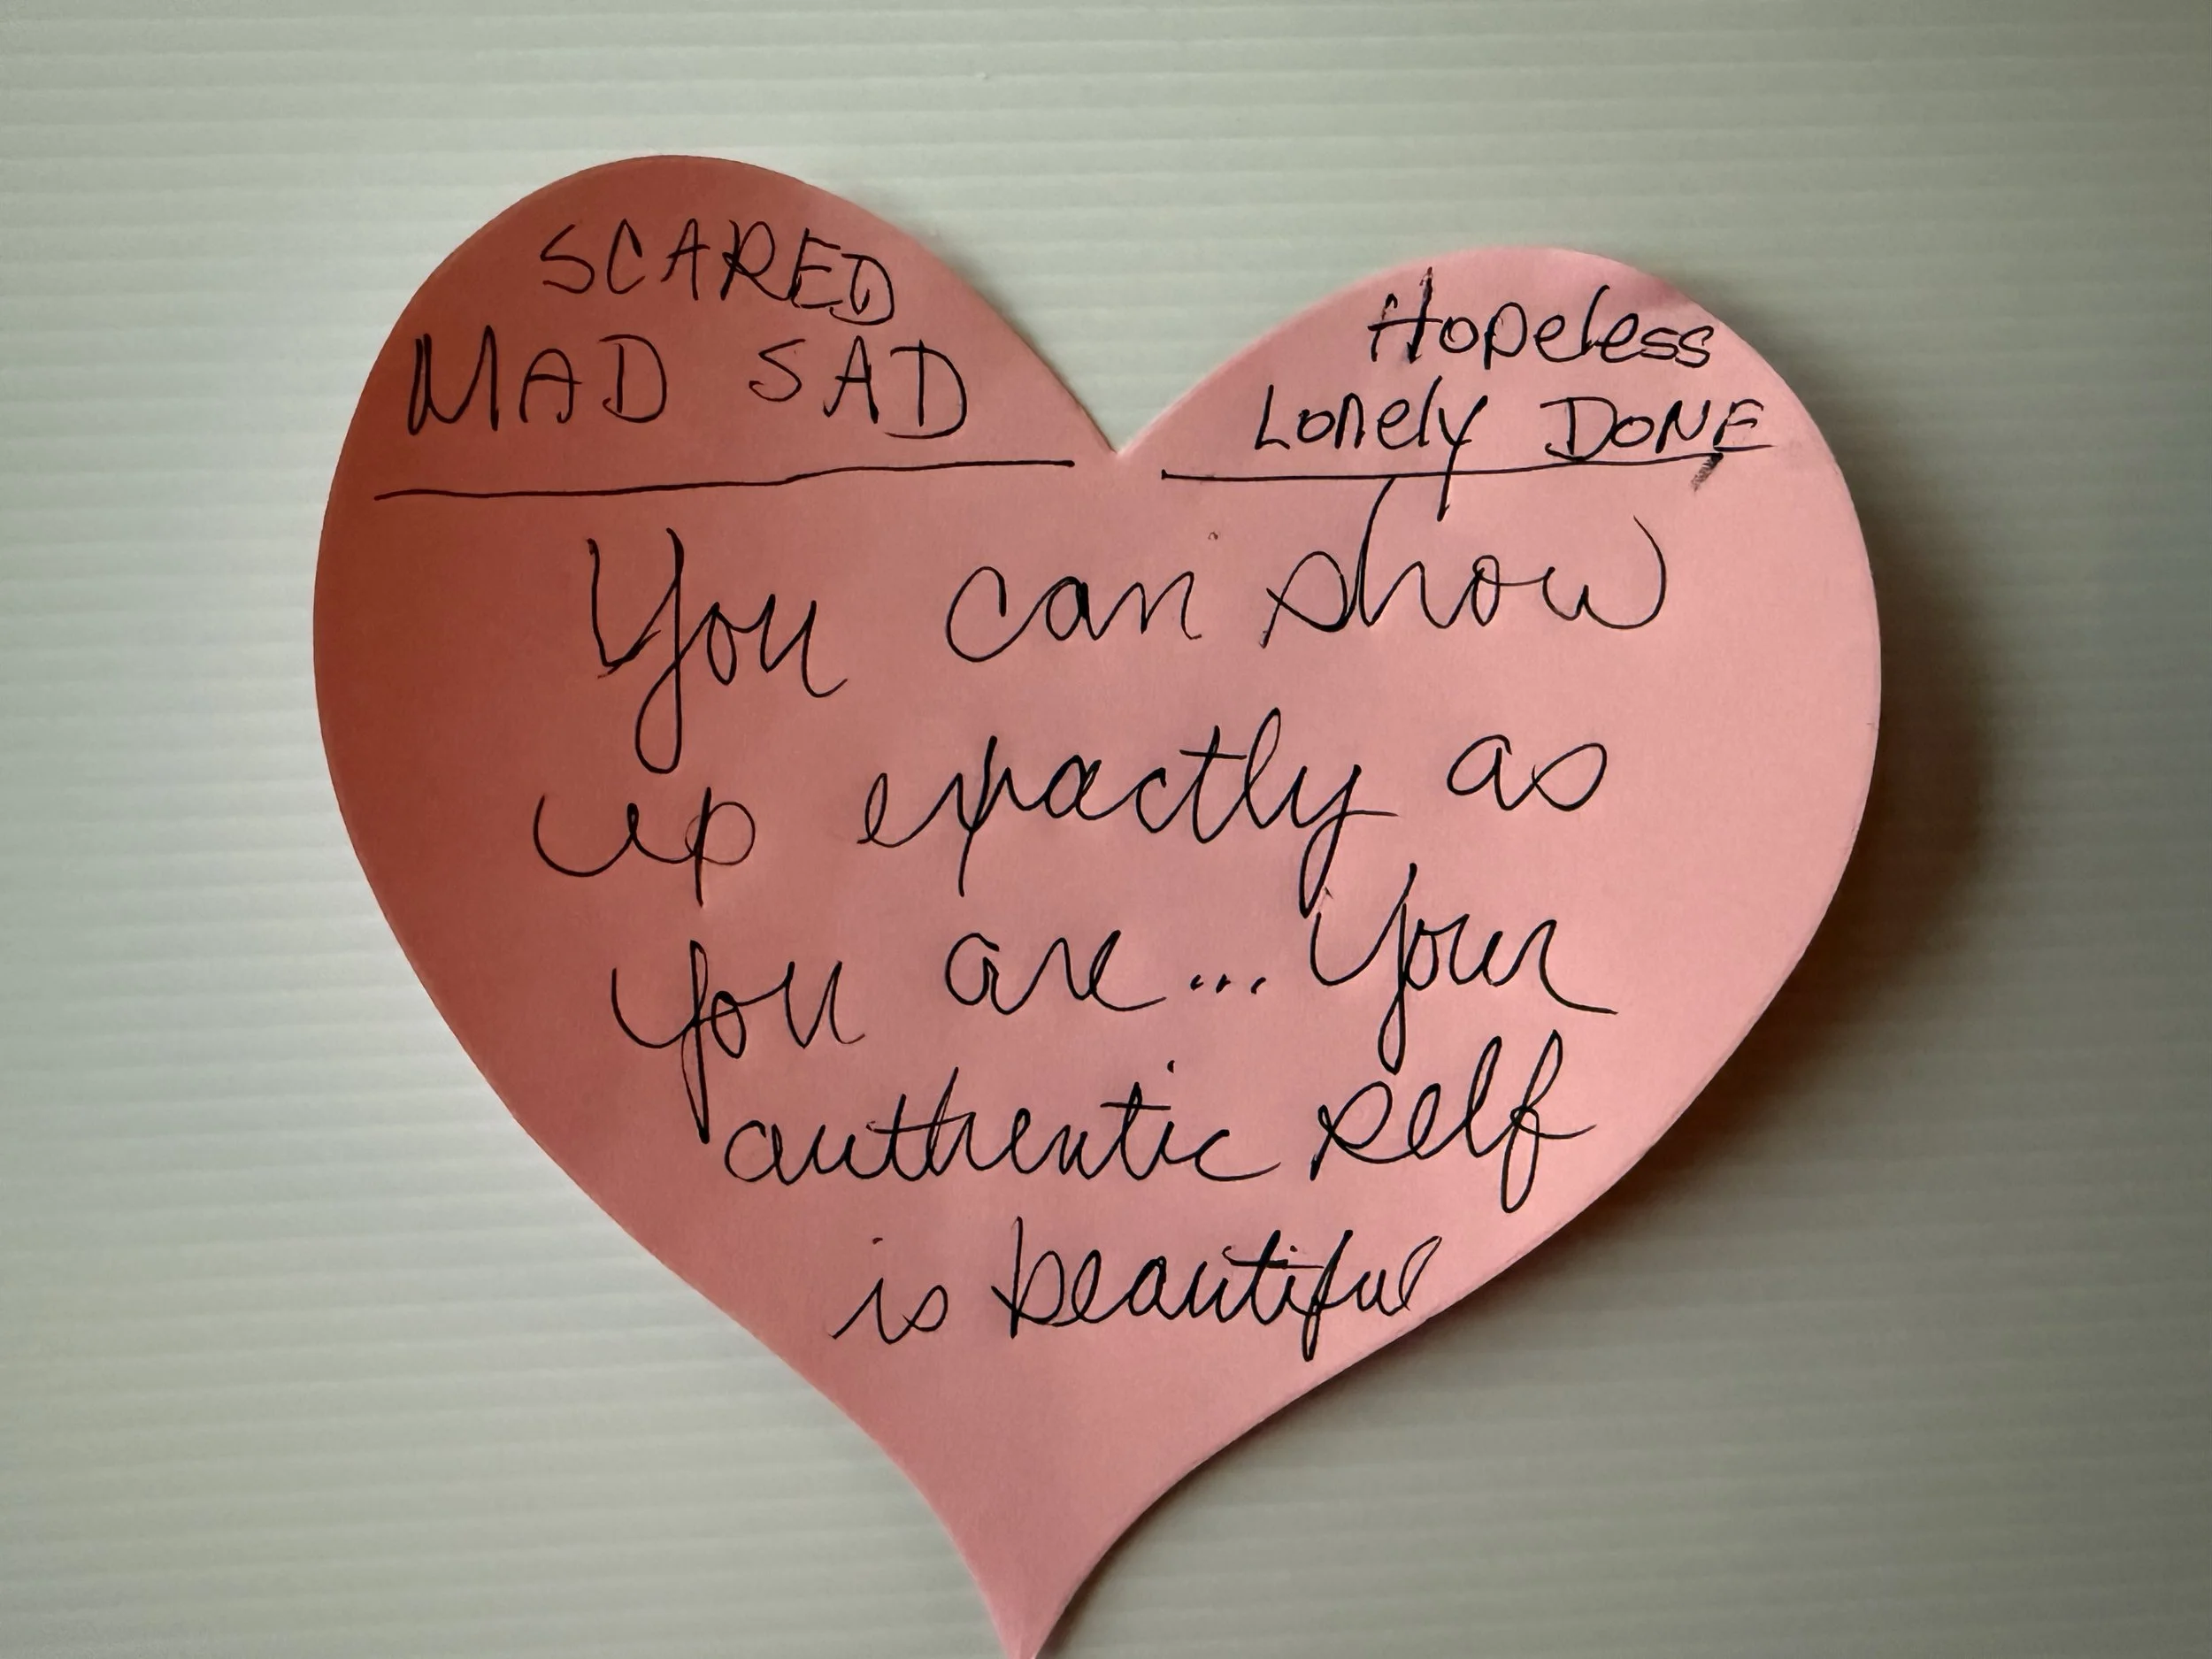 SCARED
MAD SAD
Hopeless
Lonely DONE
You can show
up exactly as
you are... Your
authentic self
is beautiful